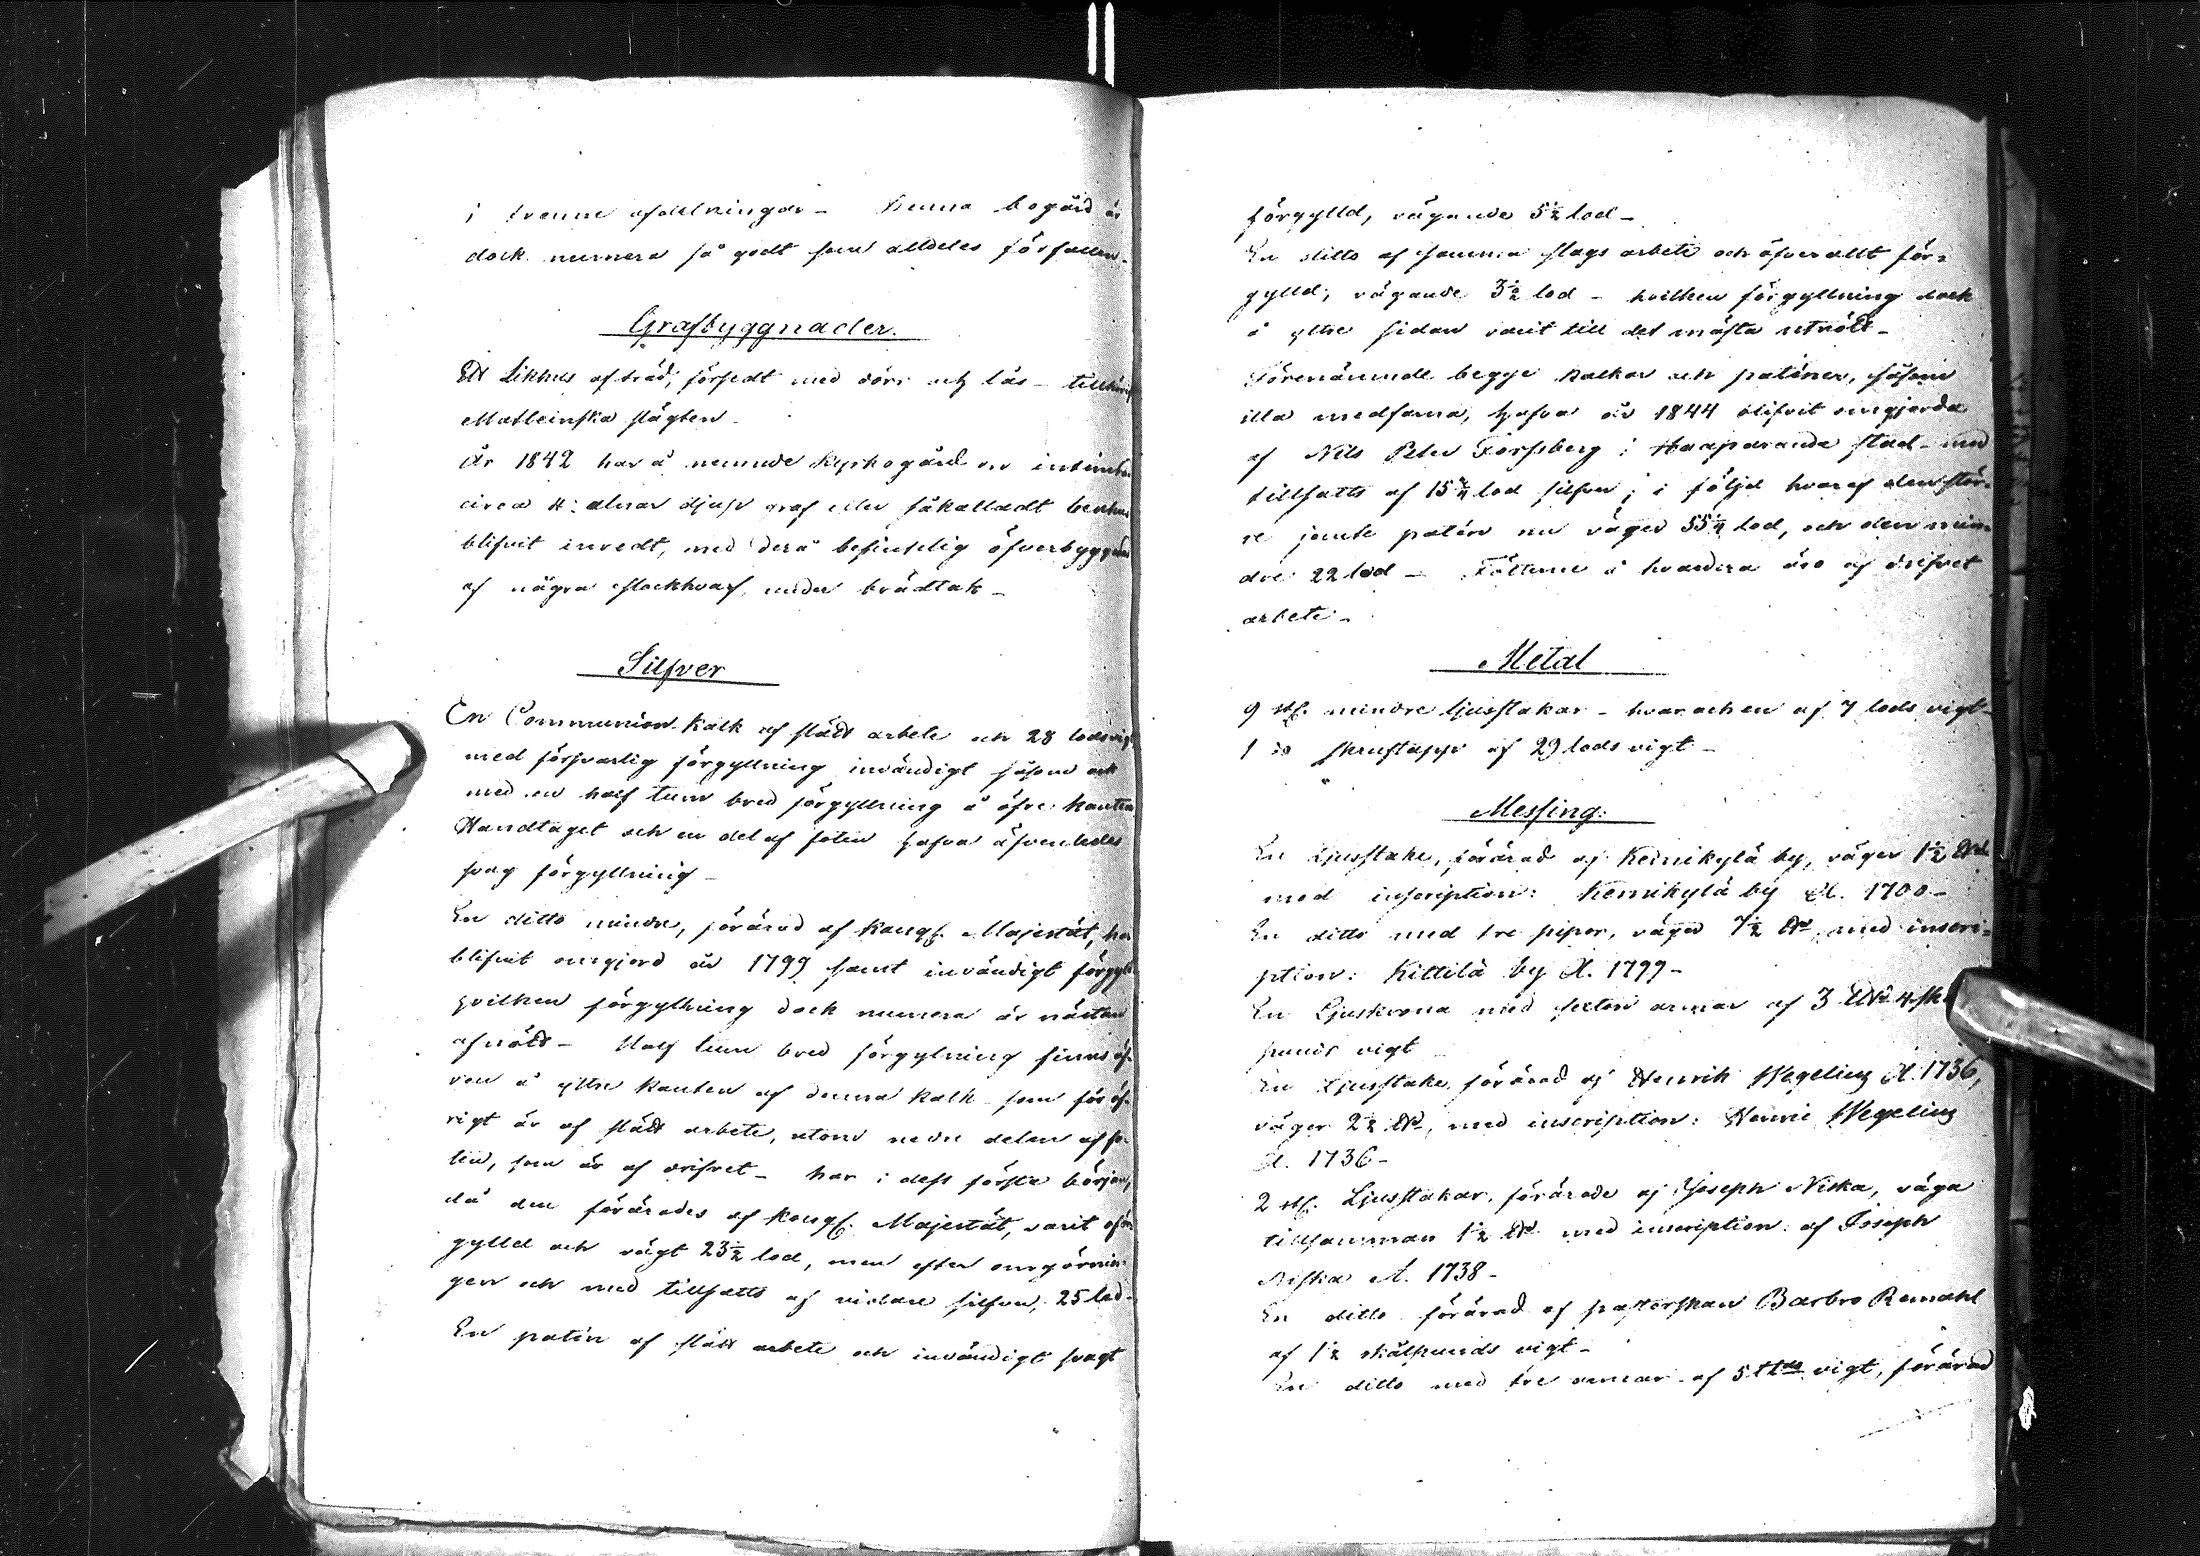 i tvenne afdelningar – Denna bogård är
dock numera så godt som alldeles förfallen.
Grafbyggnader.
Ett Likhus af träd, försedt med dörr och lås – tillhörig
Matleinska slägten.
År 1842 har å nemnde kyrkogård en
circa 4: alnar djup graf eller såkalladt benhus
blifvit inredt, med derå befintelig öfverbyggnad
af några stockhvarf, under brädtak –
Silfver
En Communion-kalk af slätt arbete och 28 lods vigt
med försvarlig förgyllning invändigt såsom ock
med en half tum bred förgyllning å öfre kanten
Handtaget och en del af foten hafva äfvenledes
svag förgyllning –
En ditto mindre, förärad af Kongl. Majestät, har
blifvit omgjord år 1799 samt invändigt förgyld
hvilken förgyllning dock numera är nästan
afnött – Half tum bred förgylning finns äf-
ven å yttre kanten af denna kalk som för öf-
rigt är af slätt arbete, utom nedre delen af fo-
ten, som är af drifvet – har i dess första början,
då den förärades af Kongl. Majestät, varit oför-
gylld och vägt 23½ lod, men efter omgörnin-
gen och med tillsatts af vidare silfver, 25 lod –
En patén af slätt arbete och invändigt svagt
förgylld, vägande 5½ lod –
En ditto af samma slags arbete och öfverallt för-
gylld, vägande 3½ lod – hvilken förgyllning dock
å yttre sidan varit till det mästa utnött –
Förenämnde begge kalkar och paténer, såsom
illa medfarna, hafva år 1844 blifvit omgjorda
af Nils Peter Forssberg i Haaparanda stad – med
tillsatts af 15¾ lod silfver; i följd hvaraf den stör-
re jemte patén nu väger 55¼ lod, och den min-
dre 22 lod – Fötterne å hvardera äro af drifvet
arbete –
Metal
9 st. mindre ljusstakar – hvar och en af 7 lods vigt –
1 do skruftapp af 29 lods vigt –
Messing:
En Ljusstake, förärad af Kemikylä by, väger 1½
med inscription: Kemikylä by A. 1700 –
En ditto med tre pipor, väger 7½ med inscri-
ption: Kittilä by A. 1799 –
En Ljuskrona med sexton armar af 3
punds vigt
En Ljusstake förärad af Henrik Wegelius A. 1736,
väger 2½ med inscription: Henric Wegelius
A. 1736 –
2 st. Ljusstakar, förärade af Joseph Niska, väga
tillsamman 1½ med inscription: af Joseph
Niska A. 1738 –
En ditto förärad af pastorskan Barbro Remahl
af 1½ skålpunds vigt –
En ditto med tre armar af 5 vigt, förärad